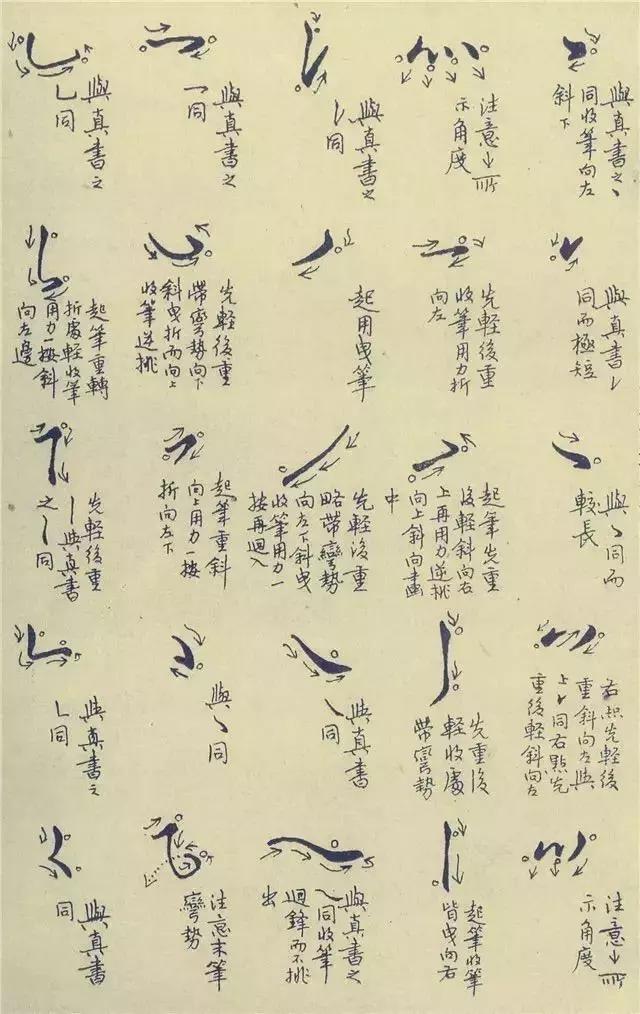 與真書之丶
同收筆向左
斜下
注意↓所
示角度
與真書之
丿同
與真書之
一同
與真書之
乚同
與真書㇀
同而極短
先輕後重
收筆用力折
向左
起用曳筆
先輕後重
帶彎勢向下
斜曳折而向上
收筆逆挑
起筆重轉
折處輕收筆
用力一按斜
向左邊
與丶同而
較長
起筆先重
後輕斜向右
上再用力逆挑
向上斜向畫
中
先輕後重
略帶彎勢
向左下斜曳
收筆用力一
按再迴入
起筆重斜
向上用力一按
折向左下
先輕後重
丨與真書
之丨同
右点先輕後
重斜向左與
上㇀同右點先
重後輕斜向左
先重後
輕收處
帶彎勢
與真書
㇏同
與丶同
與真書之
乚同
注意↓所
示角度
起筆收筆
皆曳向右
與真書之
㇏同收筆
迴鋒而不挑
出
注意末筆
彎勢
與真書
同